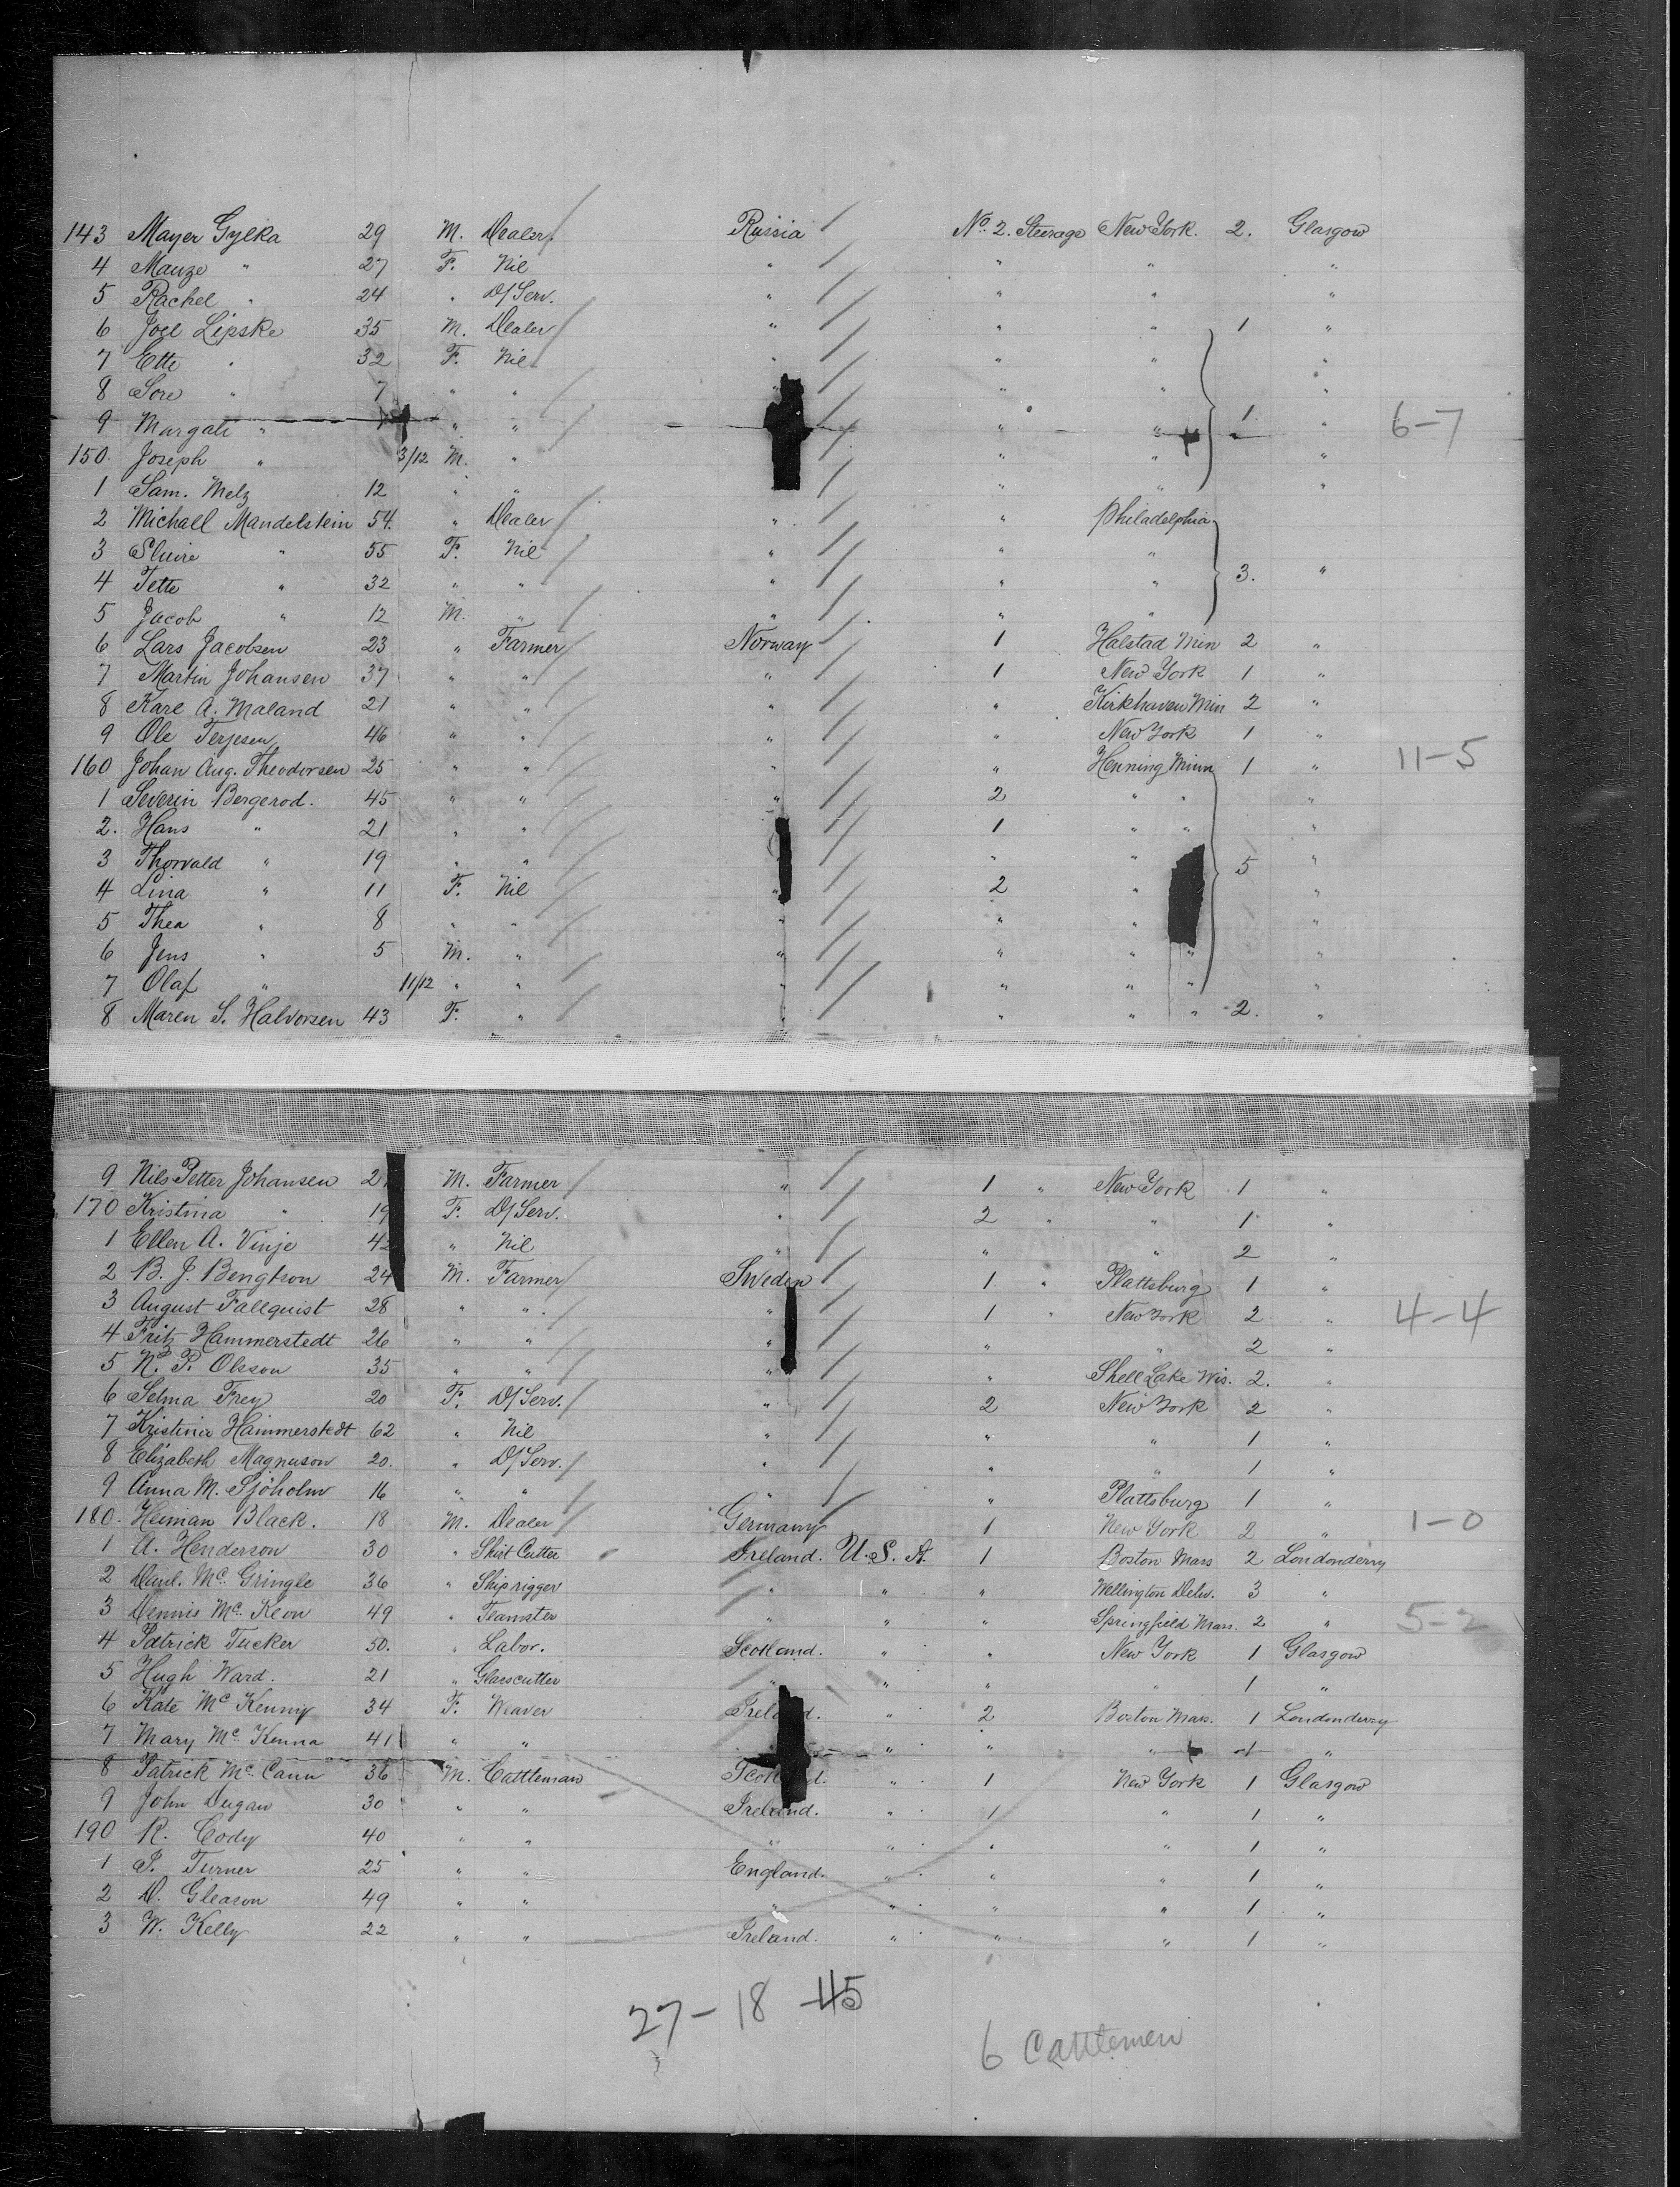 143 Mayer Gylka 29 M. Dealer Russia No. 2. Steerage New York. 2. Glasgow
4 Mauze " 27 F. Nil " " " "
5 Rachel " 24 " D/Serv. " " " "
6 Joel Lipske 35 M. Dealer " " " 1 "
7 Ette " 32 F. Nil " " " "
8 Sore " 7 " " " " " "
9 Margati " " " " " 1. " 6-7
150. Joseph " 3/12 M. " " " "
1 Sam. Melz 12 " " " " " "
2 Michall Mandelstein 54. " Dealer " " Philadelphia
3 Sluire " 55 F. Nil " " "
4 Tette " 32 " " " " " 3. "
5 Jacob " 12 M. " " " "
6 Lars Jacobsen 23 " Farmer Norway 1 Halstad Min 2 "
7 Martin Johansen 37 " " " 1 New York 1 "
8 Karl A. Maland 21 " " " " Kirkhaven Min 2 "
9 Ole Terjesen 46 " " " " New York 1 "
160 Johan Aug. Theodorsen 25 " " " " Henning Minn 1 " 11-5
1 Severin Bergerod. 45 " " " 2 " " "
2. Hans " 21 " " " 1 " " "
3 Thorvald " 19 " " " " 5 "
4 Lina " 11 F. Nil " 2 " "
5 Thea " 8 " " " " "
6 Jens " 5 M. " " " " "
7 Olaf " 11/12 " " " " " " "
8 Maren S. Halvorsen 43 F. " " " " " 2. "
9 Nils Petter Johansen 2 M. Farmer " 1 " New York 1 "
170 Kristina " 19 F. D/Serv. " 2 " " 1 "
1 Ellen A. Vinje 42 " Nil " " " 2 "
2 B. J. Bengtson 24 M. Farmer Sweden 1. " Plattsburg 1 "
3 August Fallquist 28 " " " 1 " New York 2 " 4-4
4 Fritz Hammerstedt 26 " " " " " 2 "
5 N. P. Olsson 35 " " " " Shell Lake Wis. 2. "
6 Selma Frey 20 F. D/Serv. " 2 New York 2 "
7 Kristina Hammerstedt 62 " Nil " " " 1 "
8 Elizabeth Magnuson 20. " D/Serv. " " " 1 "
9 Anna M. Sjöholm 16 " " " " Plattsburg 1 "
180. Heiman Black. 18 M. Dealer Germany 1 New York 2 " 1-0
1 A. Henderson 30 " Shirt Cutter Ireland. U.S.A. 1 Boston Mass 2 Londonderry
2 Danl. McGringle 36 " Ship rigger " " " Wellington Delw. 3 "
3 Dennis McKeon 49 " Teamster " " " Springfield Mass. 2 " 5-2
4 Patrick Tucker 50. " Labor. Scotland. " " New York 1 Glasgow
5 Hugh Ward. 21 " Glasscutter " " " " 1 "
6 Kate McKenny 34 F. Weaver Ireland. " 2 Boston Mass. 1 Londonderry
7 Mary McKenna 41 " " " " " 1 "
8 Patrick McCann 36 M. Cattleman Scotland. " 1 New York 1 Glasgow
9 John Dugan 30 " " Ireland. " 1 " 1 "
190 R. Cody 40 " " " " " " 1 "
1 P. Turner 25 " " England. " " " 1 "
2 D. Gleason 49 " " " " " " 1 "
3 W. Kelly 22 " " Ireland. " " " 1 "
27-18 45
6 Cattlemen